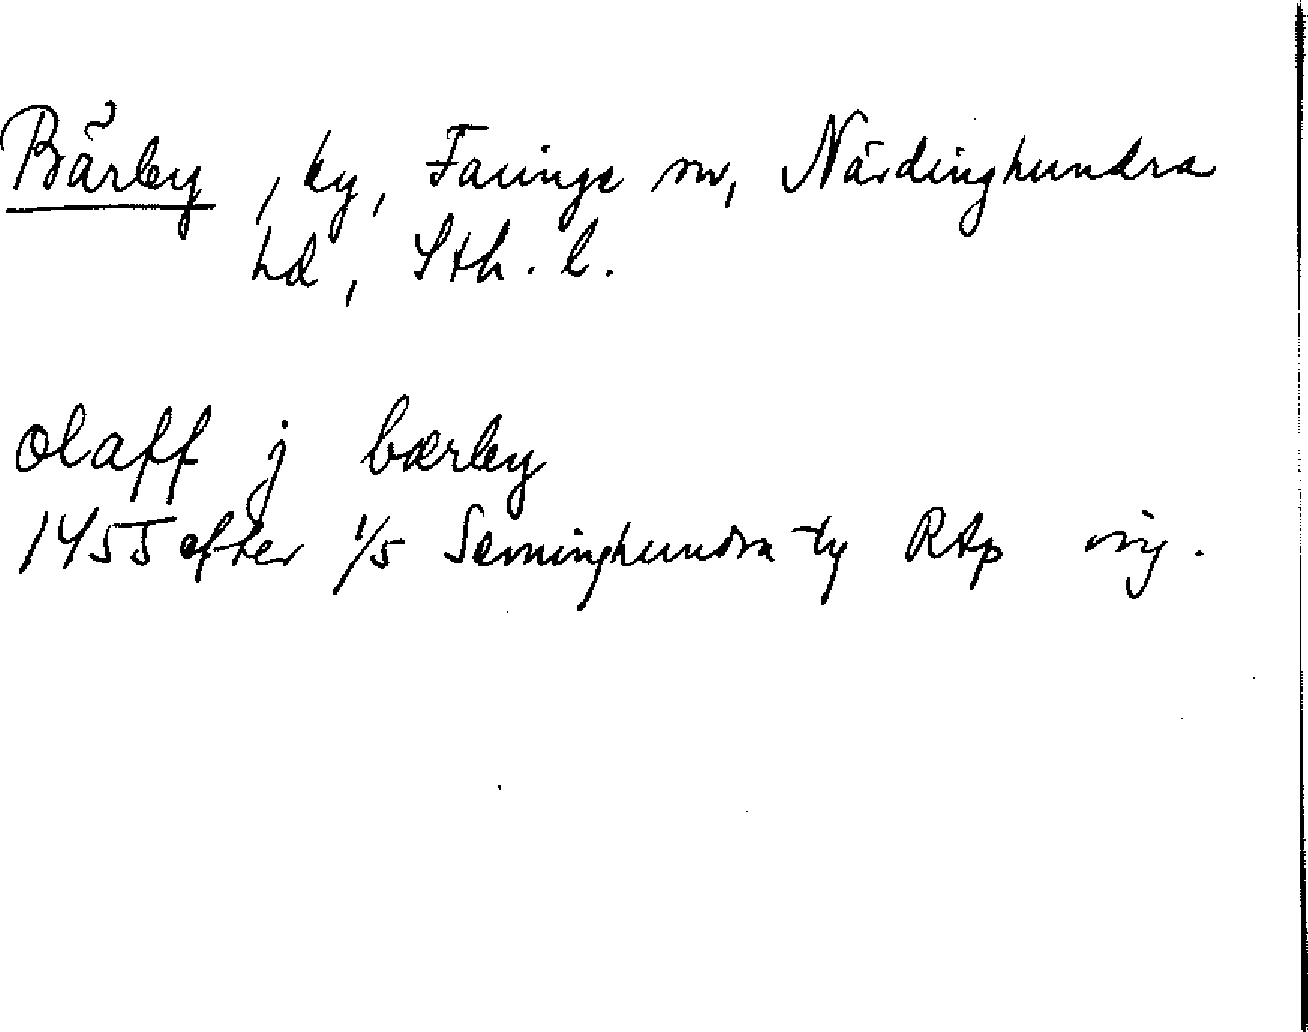 Bärby, by, Faringe sn, Närdinghundra
hd, Sth. l.
olaff j bærby
1455 efter 1/5 Seminghundra tg RAp orig.